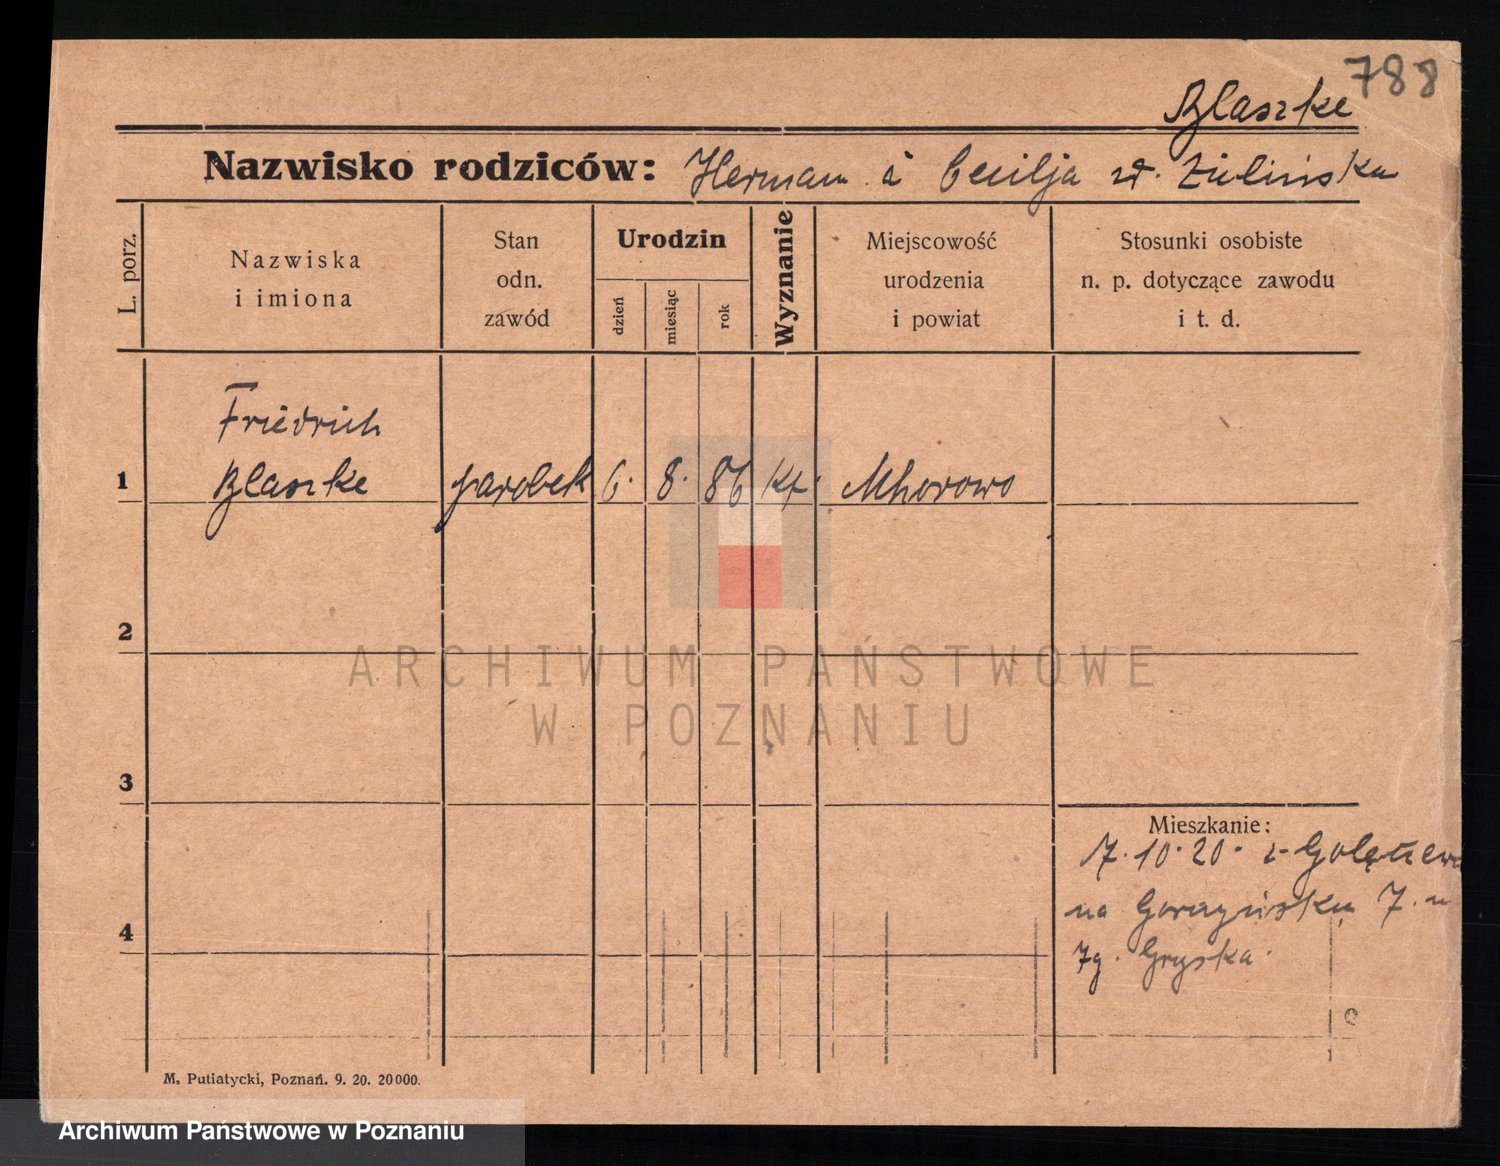 788
Blaszke
Nazwisko rodziców: Herman i Cecilja zd. Zielińska
L. porz.
Nazwiska
i imiona
Stan
odn.
zawód
Urodzin
dzień
miesiąc
rok
Wyznanie
Miejscowość
urodzenia
i powiat
Stosunki osobiste
n. p. dotyczące zawodu
i t. d.
Friedrich
1 Blaszke parobek 6. 8. 86 kt.
2
ARCHIWUM PAŃSTWOWE
W POZNANIU
3
Mieszkanie:
7. 10. 20. z
na 7.
4
M. Putiatycki, Poznań. 9. 20. 20000.
Archiwum Państwowe w Poznaniu